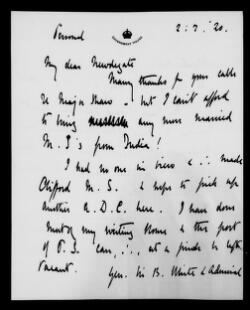 Personal 2.7.'20.
GOVERNMENT HOUSE
My dear Newdegate
Many thanks for your cable
re Major Shaw - but I can't afford
to bring any more married
M.S's from India!
I had no one in view & .:. made
Clifford M.S. & hope to pick up
another A.D.C. here. I have done
most of my writing Home & the post
of P.S. can, ... at a pinch be left
vacant.
Gen. Sir B. White & Admiral